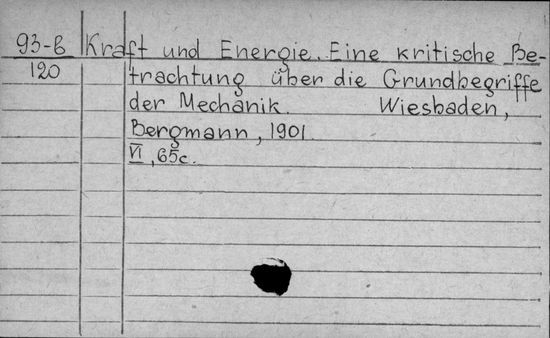 93-Б Kraft und Energie. Eine kritische Be-
120 trachtung über die Grundbegriffe
der Mechanik. Wiesbaden,
Bergmann, 1901.
VI, 65c.